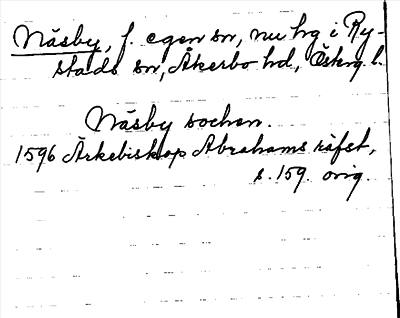 Näsby, f. egen sn, nu hg i Ry-
stads sn, Åkerbo hd, Österg. l.
Näsby sochen.
1596 Ärkebiskop Abrahams räfst,
s. 159. orig.